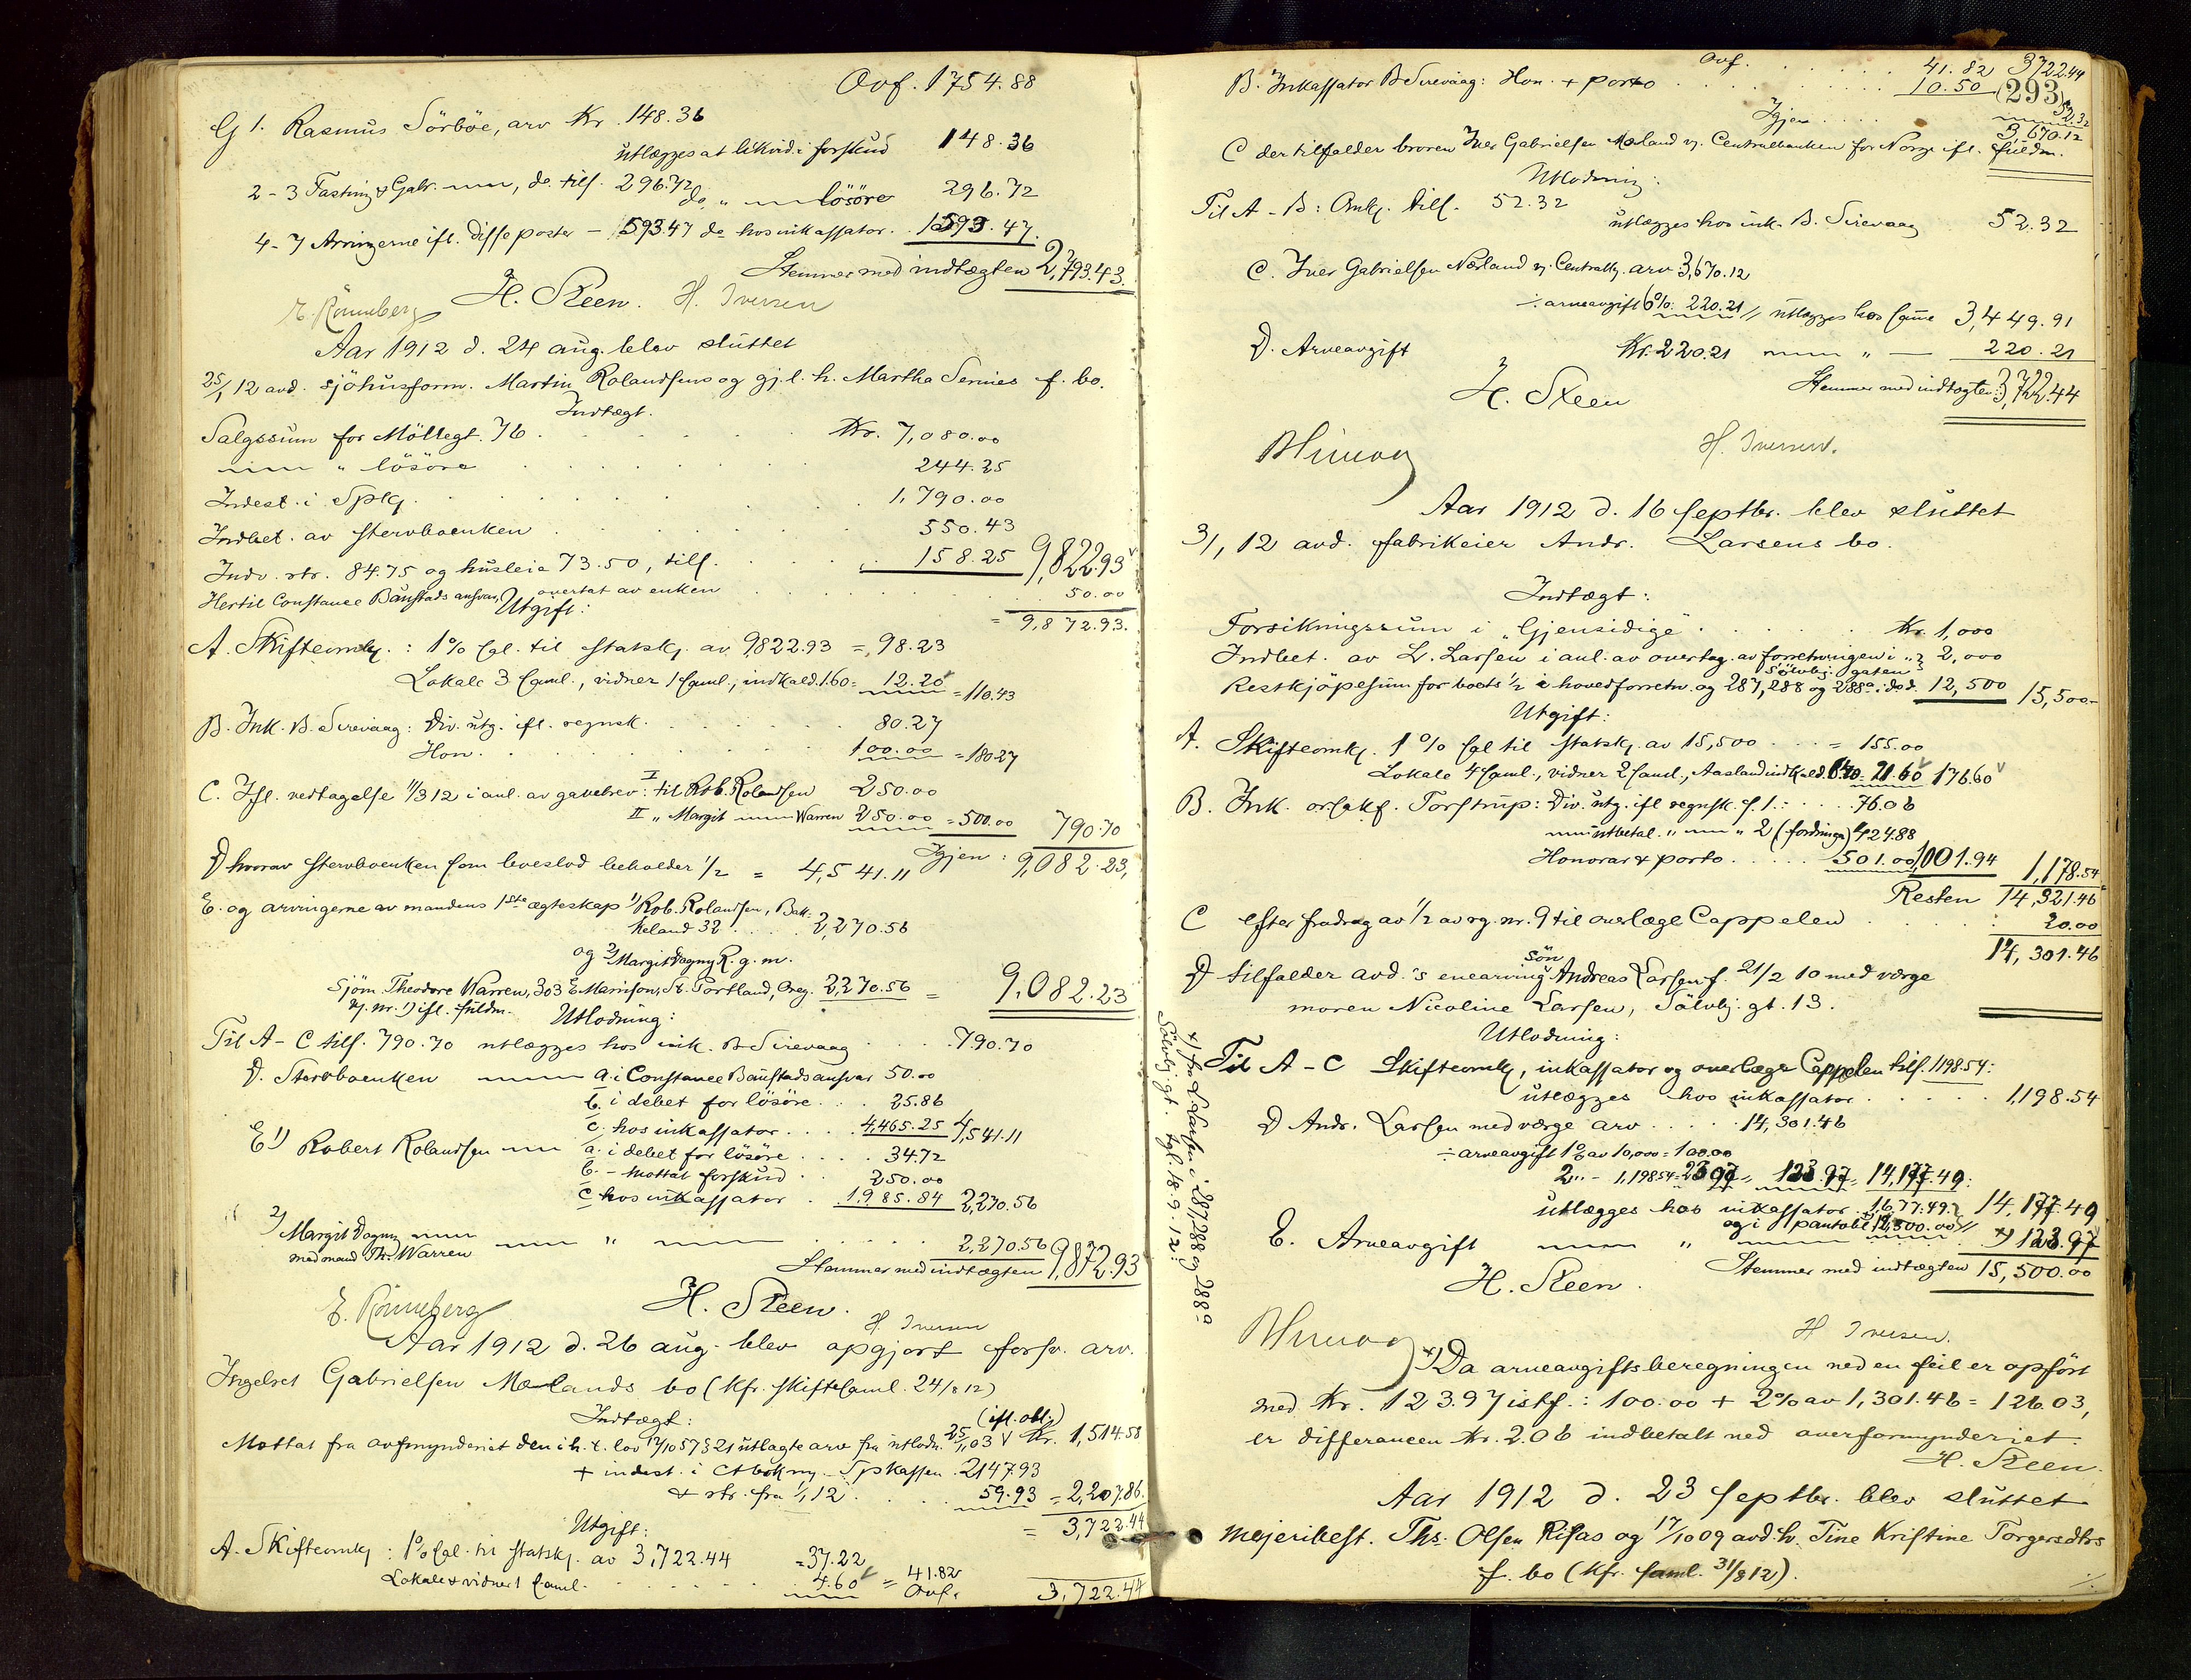 Ovf. 1754.88
G 1. Rasmus Sörböe, arv Kr. 148.36
utlægges at likvid. i forskud 148.36
2-3 Fasting & Gabr. do. tilf. 296.72 do. " löšöre 296.72
4-7 Arvingerne ifl. disse poster - 1593.47 do hos inkassator. 1593.47.
Stemmer med indtægten 2,793.43.
E. Rönneberg H. Steen. H. Iversen
Aar 1912 d. 24 aug. blev sluttet
25/1 12 avd. sjöhusform. Martin Rolandsens og gj.l. h. Martha Serines f. bo.
Indtægt.
Salgssum for Möllegt. 76 . . . Kr. 7,080.00
" lösöre . . . 244.25
Indest. i Spkg. . . . 1,790.00
Indbet. av stervboenken . . . 550.43
Indv. rtr. 84.75 og husleie 73.50, tilf. . . . 158.25 9,822.93
Hertil Constance Baustads ansvar, overtat av enken . . . 50.00
Utgift: = 9,872.93.
A. Skifteomk.: 1% sgl. til statsk. av 9822.93 = 98.23
Lokale 3 saml., vidner 1 saml., indkald. 1.60 = 12.20 = 110.43
B. Ink. B. Sirevaag: Div. utg. ifl. regnsk. . . . 80.27
Hon. . . . 100.00 = 180.27
C. Ifl. vedtagelse 11/3 12 i anl. av gavebrev: I til Rob. Rolandsen 250.00
II " Margit Warren 250.00 = 500.00 790.70
Igjen: 9,082.23,
D hvorav stervboenken som boeslod beholder 1/2 = 4,541.11
E. og arvingerne av mandens 1ste ægteskap 1) Rob. Rolandsen, Bak-
keland 32 . . . 2,270.56
og 2) Margit Dagny R. g. m.
sjöm. Theodore Warren, 303 E Marrison, St. Portland, Oreg. 2,270.56 = 9,082.23
v. nr. 1) ifl. fuldm. Utlodning:
Til A - C tilf. 790.70 utlægges hos ink. B. Sirevaag . . . 790.70
D. Stervboenken a. i Constance Baustads ansvar 50.00
b. i debet for lösöre . . . 25.86
c. hos inkassator . . . 4,465.25 4,541.11
E 1) Robert Rolandsen a. i debet for lösöre . . . 34.72
b. - mottat forskud . . 250.00
c hos inkassator . 1,985.84 2,270.56
2) Margit Dagny " . . . 2,270.56
med mand Th. Warren
Stemmer med indtægten 9,872.93
E. Rönneberg H. Steen. H Iversen
Aar 1912 d. 26 aug. blev opgjort forsv. arv.
Ingebret Gabrielsen Mælands bo (kfr. skiftesaml. 24/8 12)
Indtægt: (ifl. obl.)
Mottat fra ovfmynderiet den i h. t. lov 12/10 57 § 21 utlagte arv fra utlodn. 25/1 03 Kr. 1,514.58
+ indest. i Ct bok ny. Spkassen . 2147.93
+ rtr. fra 1/1 12 . . . 59.93 = 2,207.86.
Utgift: = 3,722.44
A. Skifteomk.: 1% sgl. til statsk. av 3,722.44 = 37.22
Lokale & vidner 1 saml. . . . 4.60 = 41.82
Ovf. 3,722.44
Ovf. . . . 41.82 3722.44
B. Inkassator B Sirevaag: Hon. + porto . . . 10.50 52.32
293
Igjen . . . 3,670.12
C der tilfalder broren Iver Gabrielsen Mæland v. Centralbanken for Norge ifl. fuldm.
Utlodning:
Til A - B: Omk. tilf. 52.32
utlægges hos ink. B. Sirevaag 52.32
C. Iver Gabrielsen Næland v. Centralb. arv 3,670.12
÷ arveavgift 6%: 220.21 // utlægges hos samme 3,449.91
D. Arveavgift Kr. 220.21 " — 220.21
H. Steen Stemmer med indtægten: 3,722.44
H. Iversen.
Aar 1912 d. 16 septbr. blev sluttet
3/1 12 avd. fabrikeier Andr. Larsens bo.
Indtægt:
Forsikringssum i "Gjensidige" . . . Kr. 1,000
Indbet. av L. Larsen i anl. av overtag. av forretningen i " 2,000
Sölvbj. gaten
Restkjöpesum for boets 1/2 i hovedforretn. og 287, 288 og 288a i do d. 12,500 15,500.-
Utgift:
A. Skifteomk. 1% sgl til statsk. av 15,500 . . . = 155.00
Lokale 4 saml., vidner 2 saml., Aasland indkald. = 21.60 176.60
B. Ink. orsakf. Torstrup: Div. utg. ifl regnsk. s. 1. : . . . 76.06
utbetal. " " 2 (fordringer) 424.88
Honorar & porto . . . 501.00 1,001.94 1,178.54
Resten 14,321.46
C efter fradrag av 1/2 av rg. nr. 9 til overlæge Cappelen . . : 20.00
14,301.46
D tilfalder avd.'s enearving sön Andreas Larsen f. 21/2 10 med værge
moren Nicoline Larsen, Sölvbj. gt. 13.
Utlodning:
Til A - C Skifteomk, inkassator og overlæge Cappelen tilf. 1198.54:
utlægges hos inkassator . . . 1,198.54
D Andr. Larsen med værge arv . . . 14,301.46
÷ arveavgift 1% av 10,000 = 100.00
2 " - 1,198.54 = 23.97 = 123.97 = 14,177.49:
utlægges hos inkassator . 1677.49.
og i pantobl. 12,500.00 // 14,177.49
E. Arveavgift " x) 123.97
H. Steen. Stemmer med indtægten 15,500.00
H Iversen.
x) Da arveavgiftsberegningen ved en feil er opfört
med Kr. 123.97 istf.: 100.00 + 2% av 1,301.46 = 126.03,
er differancen Kr. 2.06 indbetalt ved overformynderiet.
H. Steen.
Aar 1912 d. 23 septbr. blev sluttet
mejeribest. Ths. Olsen Risas og 17/10 09 avd. h. Tine Kristine Torgersdtrs
f. bo (kfr. saml. 31/8 12).
x) fra L. Larsen i 287, 288 og 288a
Sölvbj. gt. tgl. 18.9.12.